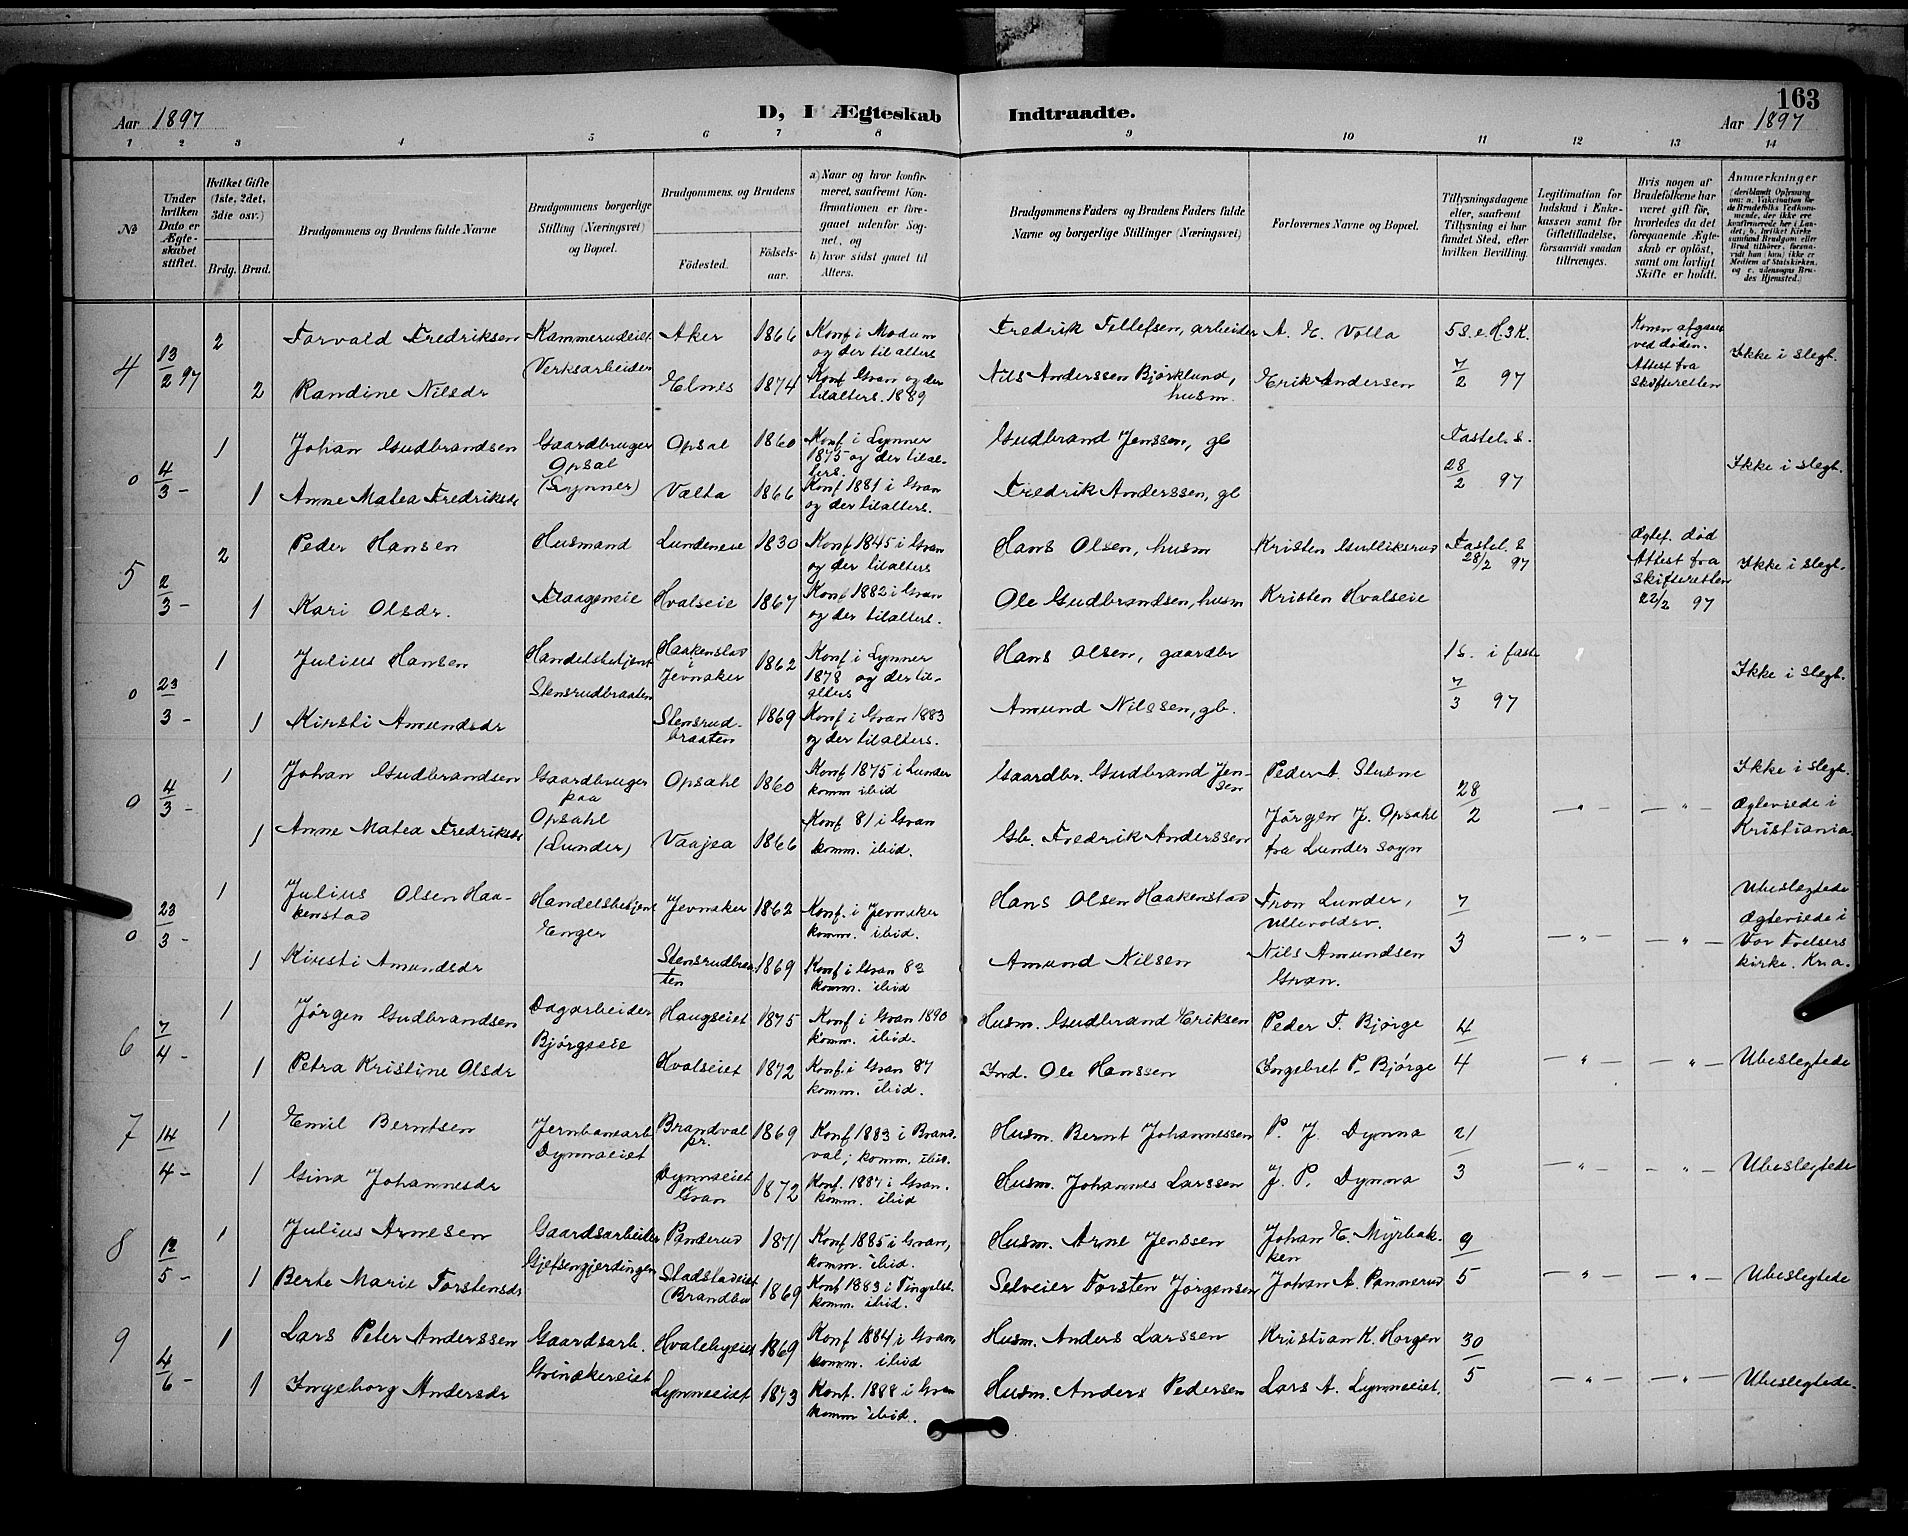 163
Aar 1897
D, I Ægteskab Indtraadte.
Aar 1897
1 2 3 4 5 6 7 8 9 10 11 12 13 14
No
Under hvilken Dato er Ægteskabet stiftet.
Hvilket Gifte (1ste, 2det, 3die osv.)
Brdg. Brud.
Brudgommens og Brudens fulde Navne
Brudgommens borgerlige Stilling (Næringsvei) og Bopæl.
Brudgommens og Brudens
Fødested.
Fødselsaar.
a) Naar og hvor konfirmeret, saafremt Konfirmationen er foregaaet udenfor Sognet, og
b) hvor sidst gaaet til Alters.
Brudgommens Faders og Brudens Faders fulde Navne og borgerlige Stillinger (Næringsvei)
Forlovernes Navne og Bopæl.
Tillysningsdagene eller, saafremt Tillysning ei har fundet Sted, efter hvilken Bevilling.
Legitimation for Indskud i Enkekassen samt for Giftetilladelse, forsaavidt saadan tiltrænges.
Hvis nogen af Brudefolkene har været gift før, hvorledes da det foregaaende Ægteskab er opløst, samt om lovligt Skifte er holdt.
Anmærkninger
(deriblandt Oplysning om: a. Vakcination for de Brudefolks Vedkommende, der ikke ere konfirmerede her i Landet; b. hvilket Kirkesamfund Brudgom eller Brud tilhører, forsaavidt han (hun) ikke er Medlem af Statskirken, og c. udensogns Brudes Hjemsted.)
4 13/2 97 2 Torvald Fredriksen Kammerudeiet Aker 1866 Konf i Modum Fredrik Tellefsen, arbeider A. E. Volla 5 S. e. H. 3 K. Konen afgaaet
Verksarbeider og der til alters ved døden. Ikke i slegt.
2 Randine Nilsdr Elnes 1874 Konf Gran og der Nils Anderssen Bjørklund, Erik Andersen 7/2 97 Attest fra
tilalters. 1889 husm. skifteretten
0 4/3 - 1 Johan Gudbrandsen Gaardbruger Opsal 1860 Konf. i Lynner Gudbrand Jenssen, gb Fastel. s.
Opsal 1875 og der tilalters. 28/2 97 Ikke i slegt.
1 Anne Matea Fredriksd (Lynner) Vælta 1866 Konf 1881 i Gran Fredrik Anderssen, gb
og der tilalters.
5 2/3 - 2 Peder Hansen Husmand Lundeneie 1830 Konf 1845 i Gran Hans Olsen, husm Kristen Gulliksrud Fastel. s Ægtef. død
og der tilalters 28/2 97 Attest fra Ikke i slegt.
1 Kari Olsdr. Hvalseie 1867 Konf 1882 i Gran Ole Gudbrandsen, husm Kristen Hvalseie skifteretten
og der tilalters. 22/2 97
0 23/3 - 1 Julius Hansen Handelsbetjent Haakenstad 1862 Konf i Lynner Hans Olsen, gaardbr 1 S. i faste
i Jevnaker 1878 og der til- Ikke i slegt.
Stensrudbraaten alters 7/3 97
1 Kirsti Amundsdr Stensrud- 1869 Konf i Gran 1883 Amund Nilssen, gb.
braaten og der tilalters.
0 4/3 - 1 Johan Gudbrandsen Gaardbruger Opsahl 1860 Konf 1875 i Lunder Gaardbr. Gudbrand Jen- Peder A. Ikke i slegt.
paa komm ibid sen 28/2 — " — — " — Ægteviede i
1 Anne Matea Fredriksd Opsahl Vaajsa 1866 Konf 81 i Gran Gb. Fredrik Anderssen Jørgen J. Opsahl Kristiania.
(Lunder) komm. ibid. fra Lunder sogn
0 23/3 - 1 Julius Olsen Haa- Handelsbetjent Jevnaker 1862 Konf. i Jevnaker Hans Olsen Haakenstad Tron Lunder, 7/3 Ubeslegtede
kenstad Enger komm. ibid. Ullevoldsv. — " — — " — Ægteviede i
1 Kirsti Amundsdr Stensrudbraa- 1869 Konf i Gran 83 Amund Nilsen Nils Amundsen Vor Frelsers
ten komm. ibid Gran. kirke. Kria.
6 7/4 - 1 Jørgen Gudbrandsen Dagarbeider Haugseiet 1875 Konf i Gran 1890 Husm. Gudbrand Eriksen Peder T. Bjørge 4/4
Bjørgseie komm. ibid.
1 Petra Kristine Olsdr Hvalseiet 1872 Konf. i Gran 87 Ind. Ole Hanssen Ingebret P. Bjørge — " — — " — Ubeslegtede
komm. ibid.
7 14/4 - 1 Emil Berntsen Jernbanearb Brandval 1869 Konf 1883 i Brand- Husm. Bernt Johannessen P. J. Dynna 21/3
Dynnaeiet pr. val; komm. ibid.
1 Gina Johannesdr Dynnaeiet 1872 Konf. 1887 i Gran. Husm. Johannes Larssen J. P. Dynna — " — — " — Ubeslegtede
Gran komm. ibid
8 12/5 - 1 Julius Arnesen Gaardsarbeider Panderud 1871 Konf 1885 i Gran, Husm. Arne Jenssen Johan E. Myrbak- 9/5
Gjefsengjerdingen komm. ibid. ken
1 Berte Marie Torstensdr Stadstadeiet 1869 Konf 1883 i Tingelst. Selveier Torsten Jørgensen Johan A. Pannerud — " — — " — Ubeslegtede
(Brandbu komm. ibid.
9 4/6 - 1 Lars Peter Anderssen Gaardsarb. Hvalebyeiet 1869 Konf 1884, i Gran Husm. Anders Larssen Kristian K. Horgen 30/5
Grinakereiet komm. ibid
1 Ingeborg Andersdr Lynneeiet 1873 Konf. 1888 i Gran Husm. Anders Pedersen Lars A. Lynneeiet. — " — — " — Ubeslegtede.
komm ibid.